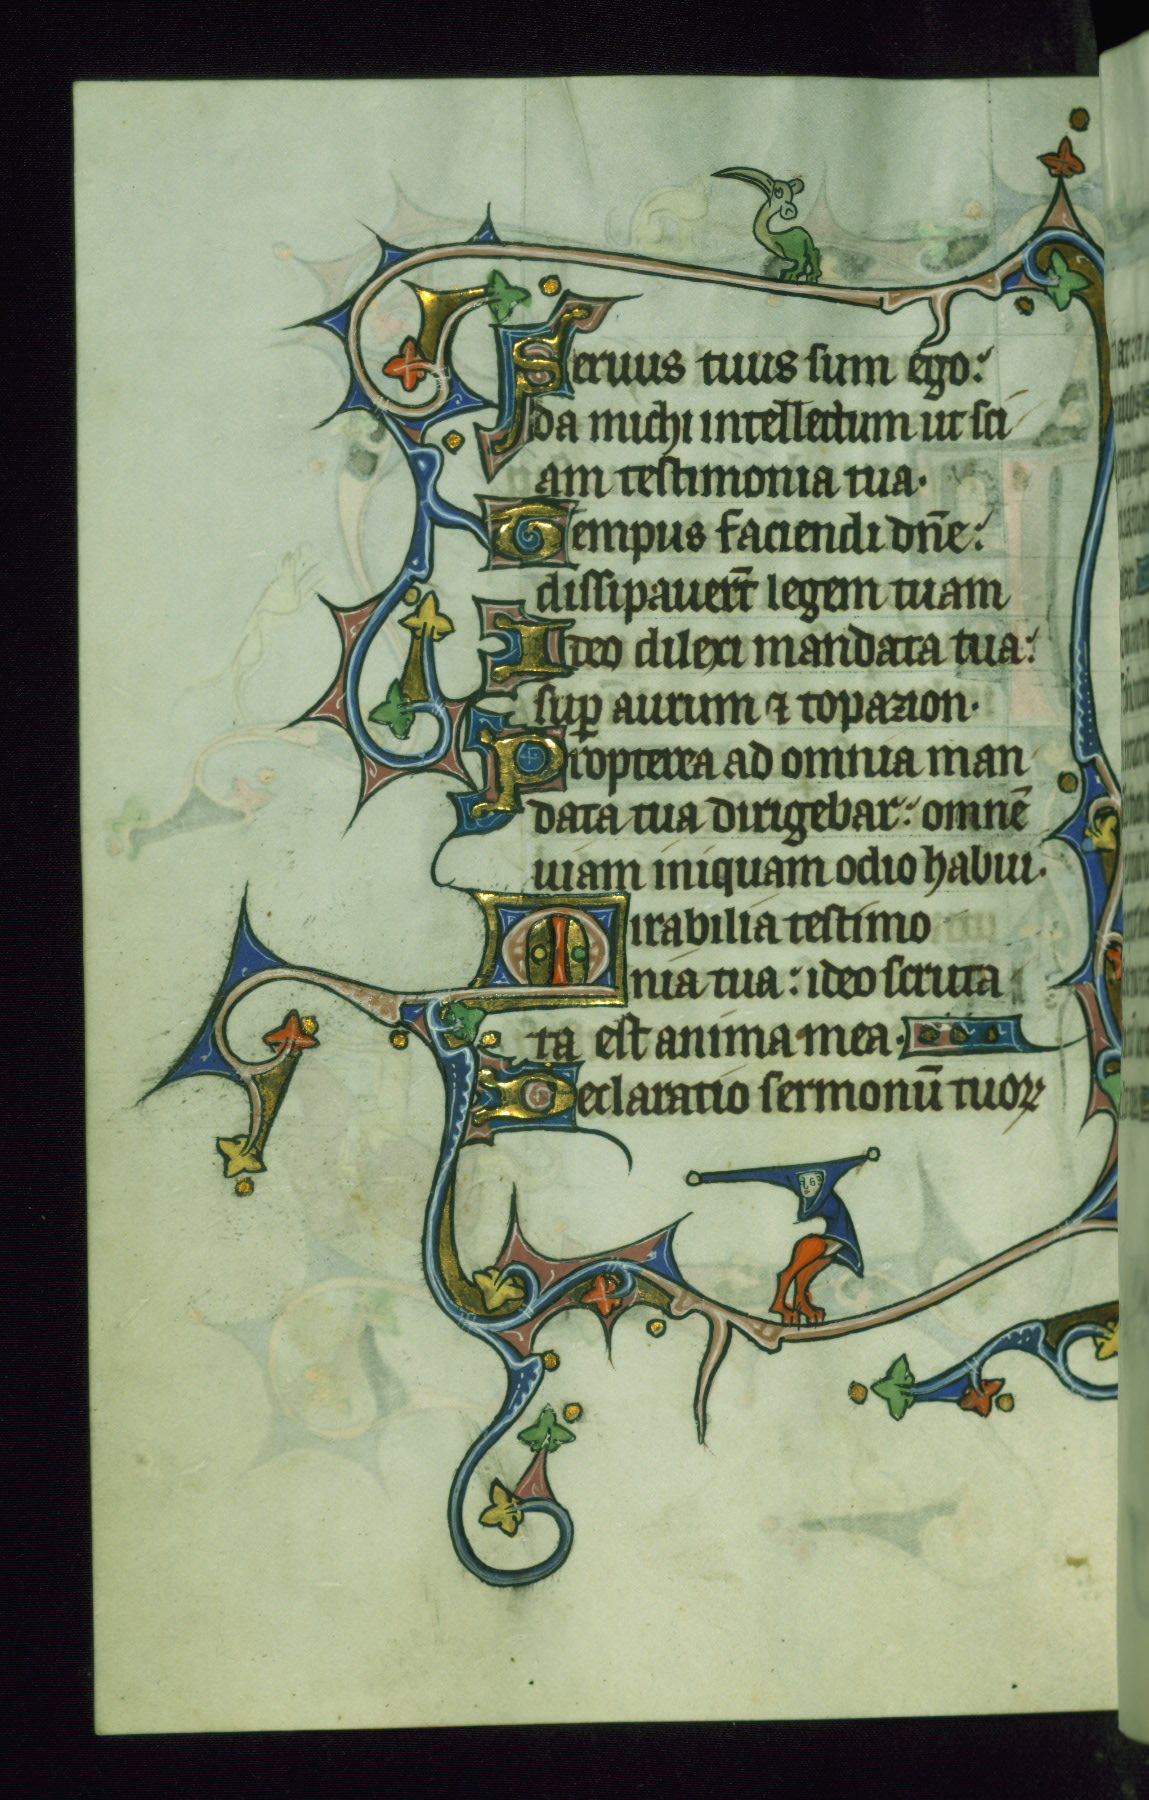 Seruus tuus sum ego:
da michi intellectum ut sci
am testimonia tua.
Tempus faciendi dñe:
dissipauert̄ legem tuam
Ideo dilexi mandata tua:
sup̲ aurum ⁊ topazion.
Propterea ad omnia man
data tua dirigebar: omnē
uiam iniquam odio habui.
Mirabilia testimo
nia tua: ideo scruta
ta est anima mea.
Declaratio sermonū tuoꝝ